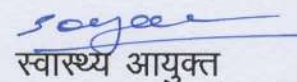 स्वास्थ्य आयुक्त